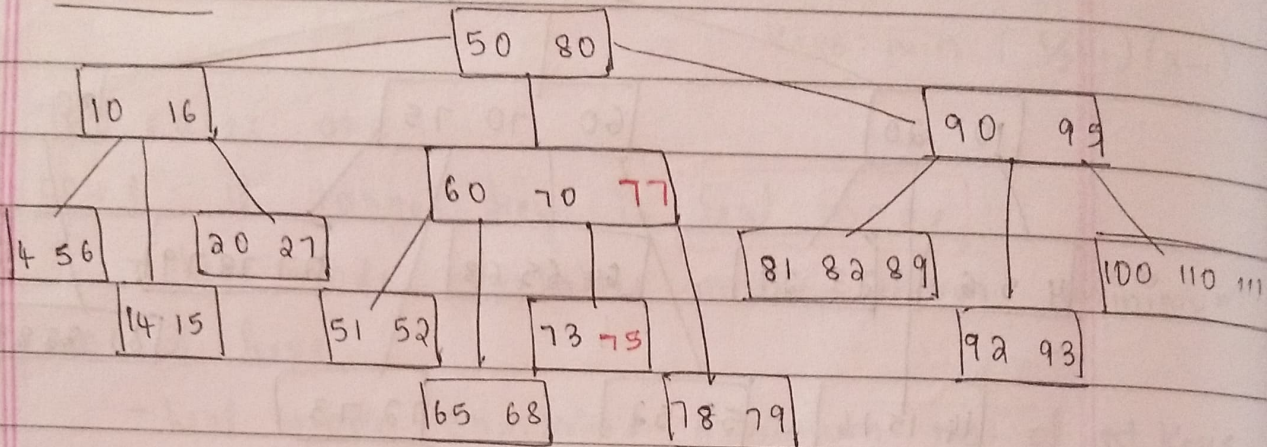 50 80
10 16
90 95
60 70 77
4 5 6
20 27
81 82 89
100 110 111
14 15
51 52
73 75
92 93
65 68
78 79